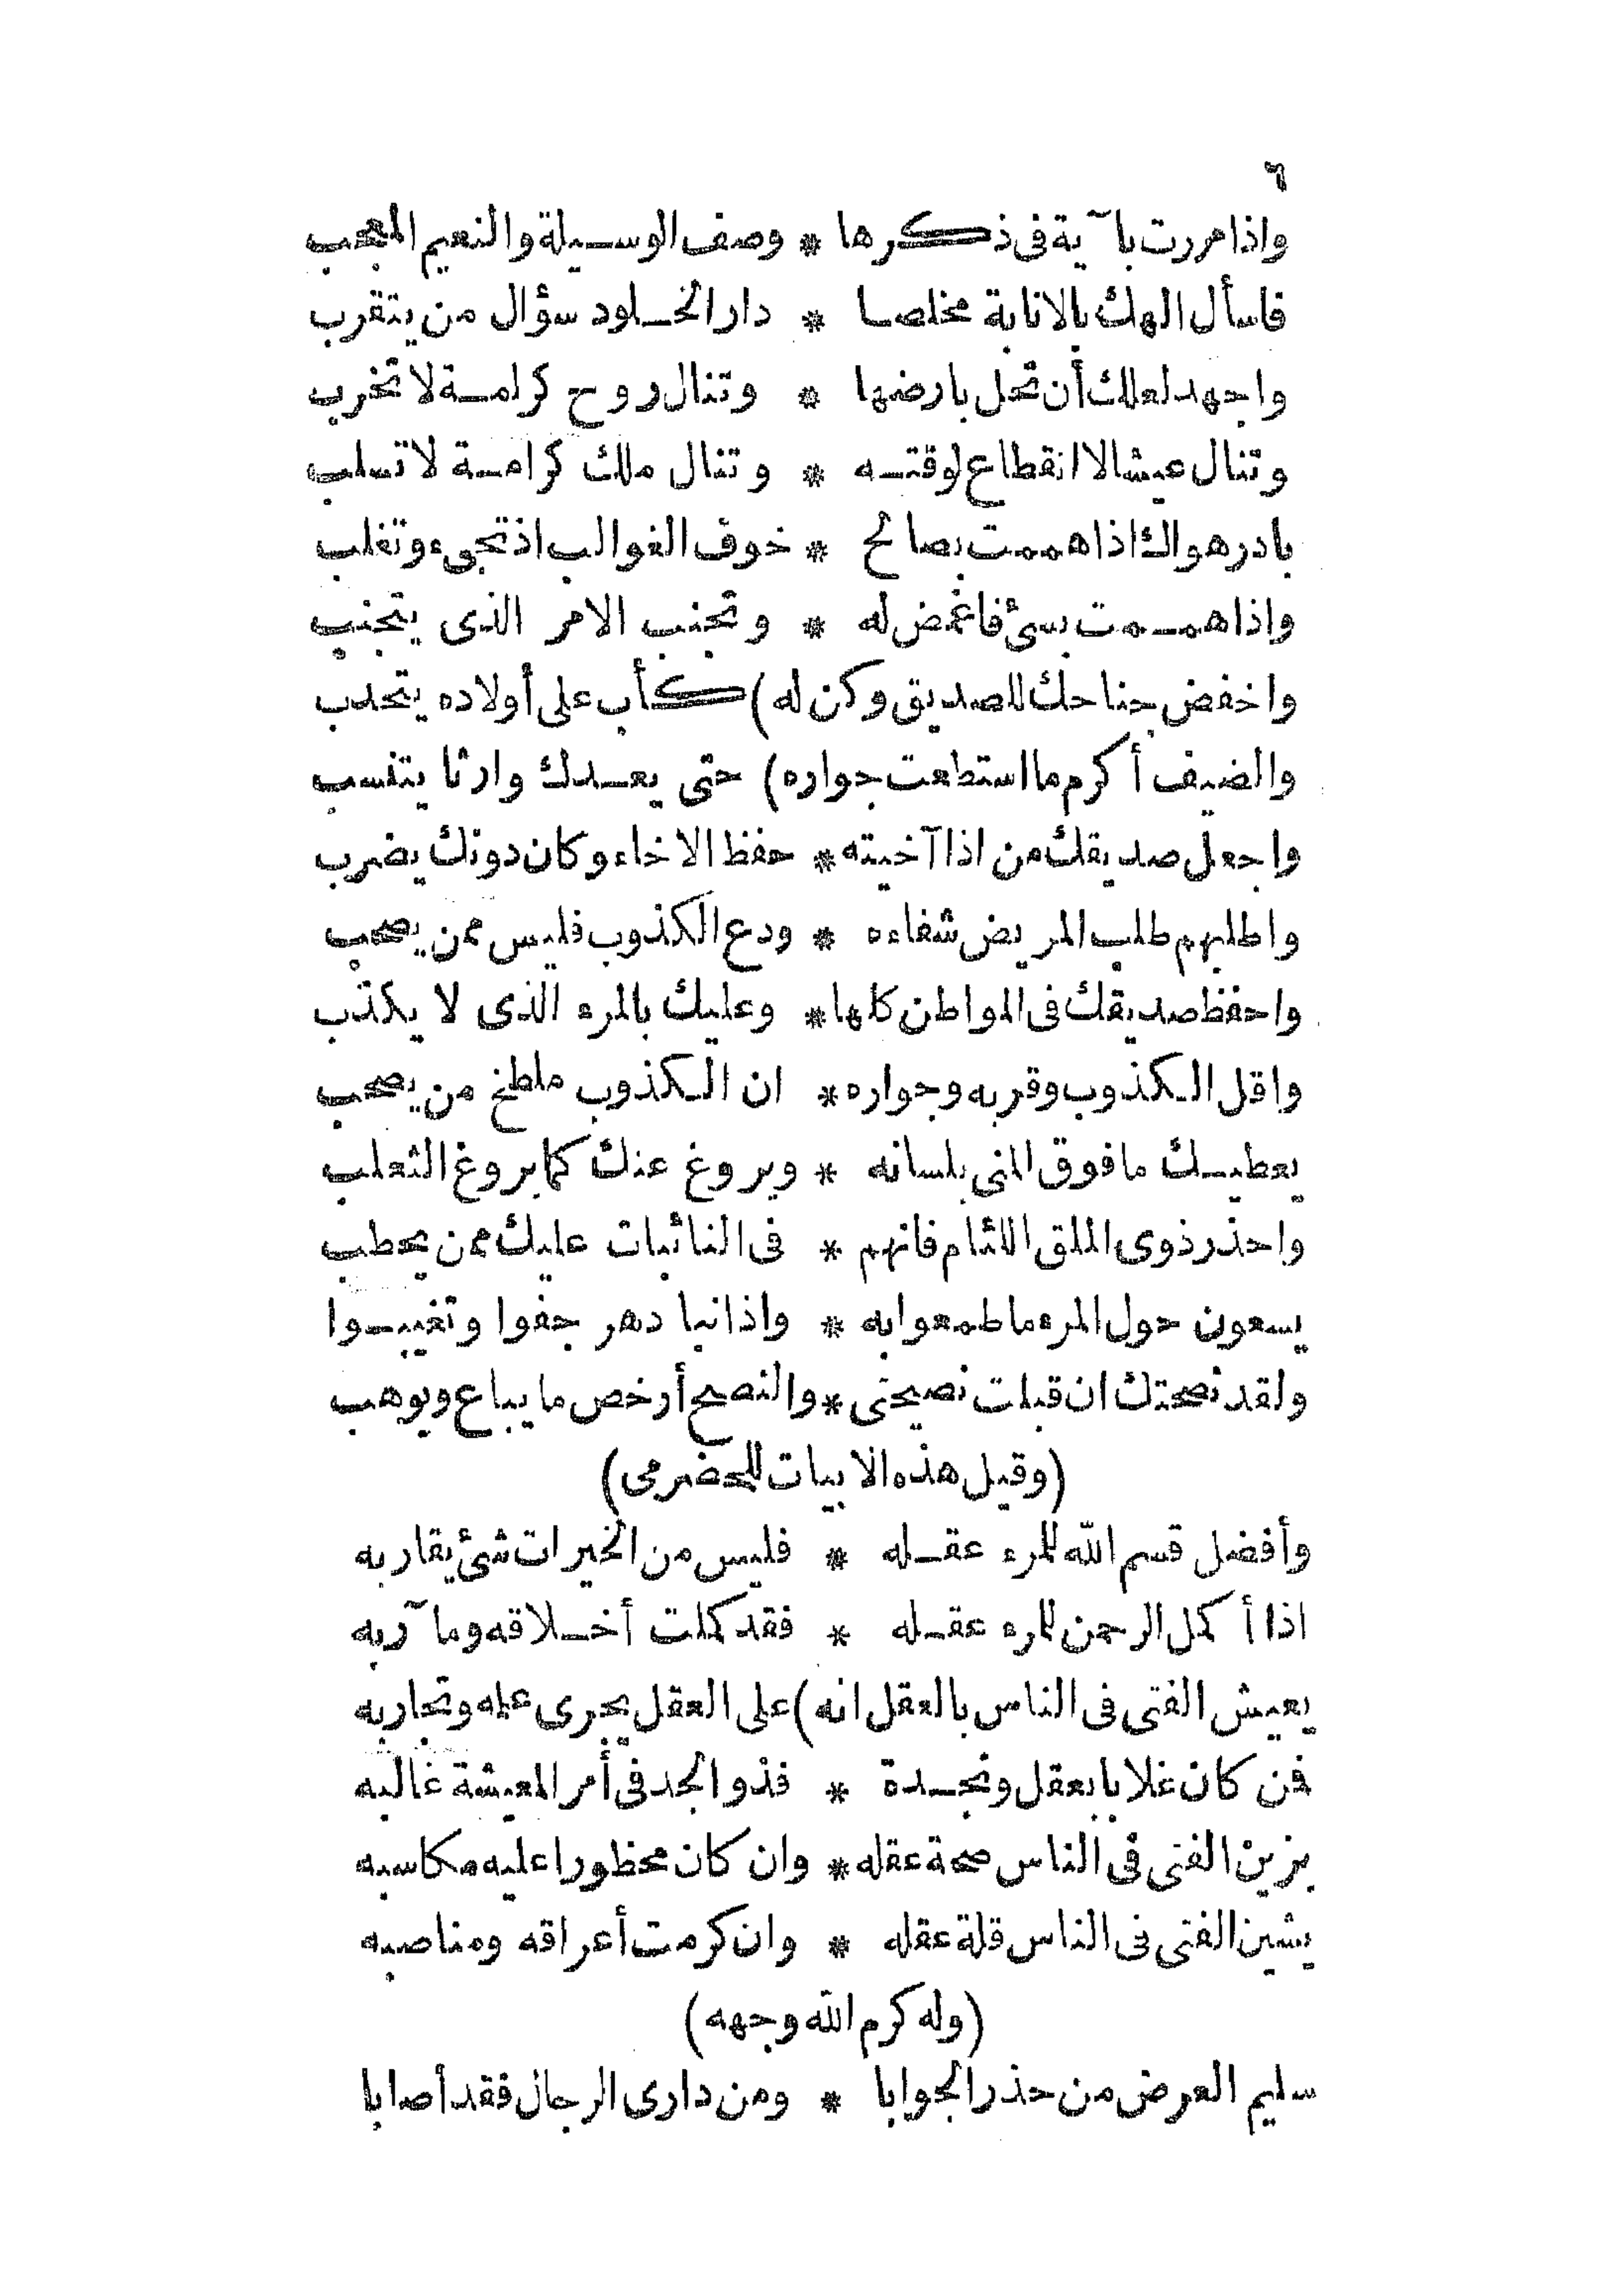 ٦
واذا مررت بآية فى ذكرها * وصف الوسيلة والنعيم المعجب
فاسأل الهك بالانابة مخلصا * دار الخلود سؤال من يتقرب
واجهد لعلك أن تحل بارضها * وتنال روح كرامة لا تخرب
وتنال عيشا لا انقطاع لوقته * وتنال ملك كرامة لا تسلب
بادر هواك اذا هممت بصالح * خوف الغوالب اذ تجىء وتغلب
واذا هممت بسئ فاغمض له * وتجنب الامر الذى يتجنب
واخفض جناحك للصديق وكن له) كأب على أولاده يتحدب
والضيف أكرم ما استطعت جواره) حتى يعدك وارثا يتنسب
واجعل صديقك من اذا آخيته * حفظ الاخاء وكان دونك يضرب
واطلبهم طلب المريض شفاءه * ودع الكذوب فليس ممن يصحب
واحفظ صديقك فى المواطن كلها * وعليك بالمرء الذى لا يكذب
واقل الكذوب وقربه وجواره * ان الكذوب ملطخ من يصحب
يعطيك ما فوق المنى بلسانه * ويروغ عنك كما يروغ الثعلب
واحذر ذوى الملق اللئام فانهم * فى النائبات عليك ممن يحطب
يسعون حول المرء ما طمعوا به * واذا نبا دهر جفوا وتغيبوا
ولقد نصحتك ان قبلت نصيحتى * والنصح أرخص ما يباع ويوهب
(وقيل هذه الابيات للحضرمى)
وأفضل قسم الله للمرء عقله * فليس من الخيرات شئ يقاربه
اذا أكمل الرحمن للمرء عقله * فقد كملت أخلاقه ومآربه
يعيش الفتى فى الناس بالعقل انه) على العقل يجرى علمه وتجاربه
فمن كان غلابا بعقل ونجدة * فذو الجد فى أمر المعيشة غالبه
يزين الفتى فى الناس صحة عقله * وان كان محظورا عليه مكاسبه
يشين الفتى فى الناس قلة عقله * وان كرمت أعراقه ومناصبه
(وله كرم الله وجهه)
سليم العرض من حذر الجوابا * ومن دارى الرجال فقد أصابا